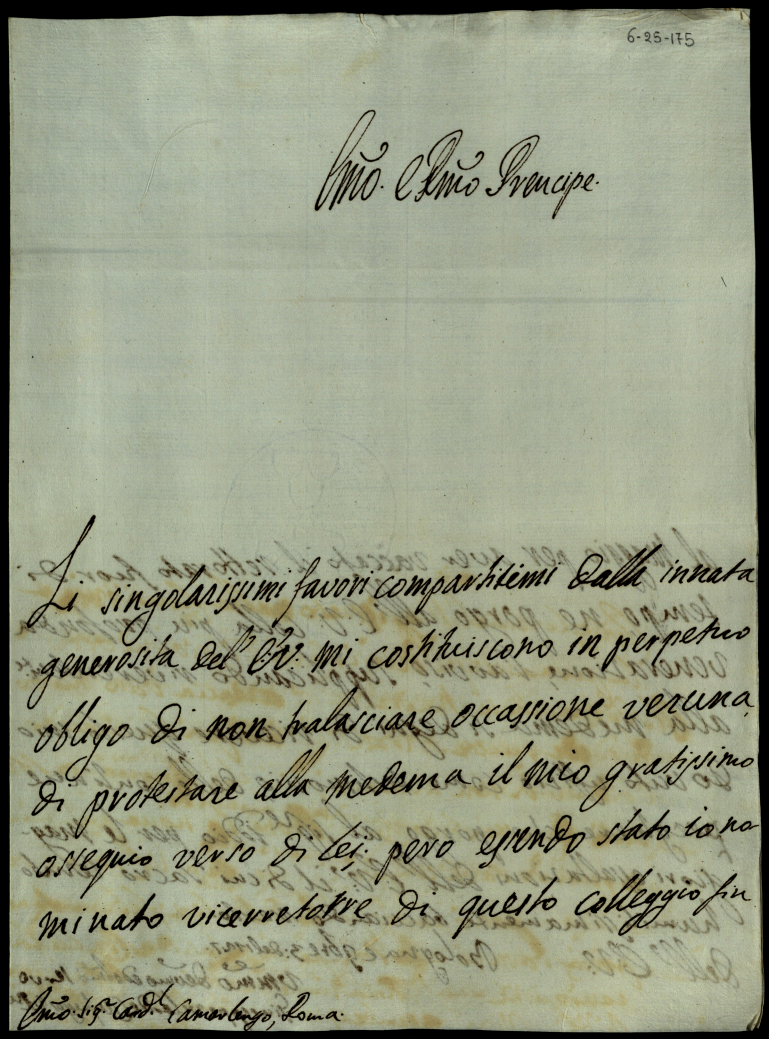 6-25-175
Emo. e Rmo Prencipe.
Li singolarissimi favori compartitimi dalla innata
generosita del' E.V. mi costituiscono in perpetuo
obligo di non tralasciare occassione veruna,
di protestare alla medema il mio gratissimo
ossequio verso di Lei; pero essendo stato io no-
minato vicerretorre di questo colleggio fin
Emo. Sigr. Card.l Camerlengo, Roma.